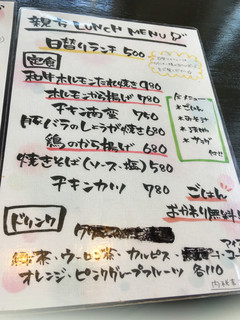 親方 LUNCH MENU
日替りランチ 500
定食
和牛ホルモンたれ焼き 980
ホルモンから揚げ 780
チキン南蛮 750
豚バラのしょうが焼き 680
鶏のから揚げ 680
焼きそば(ソース、塩) 580
チキンカツ 780
メニュー
・ごはん
・みそ汁
・漬物
・サラダ
付!!
ごはん
おかわり無料!
ドリンク
緑茶・ウーロン茶・カルピス・
オレンジ・ピンクグレープフルーツ 各110